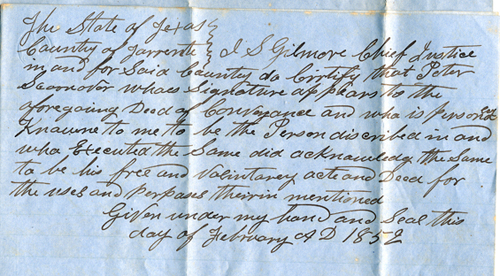 The State of Texas
County of Tarrente } I S Gilmore Chief Justice
in and for Said County do Certify that Peter
whoes Signature appears to the
foregoing Deed of Conveyance and who is
Knowne to me to be the Person discribed in and
who Executed the Same did acknowledge the Same
to be his free and volentarey act and Deed for
the uses and perpases therin mentioned
Given under my hand and Seal this
day of February A D 1852